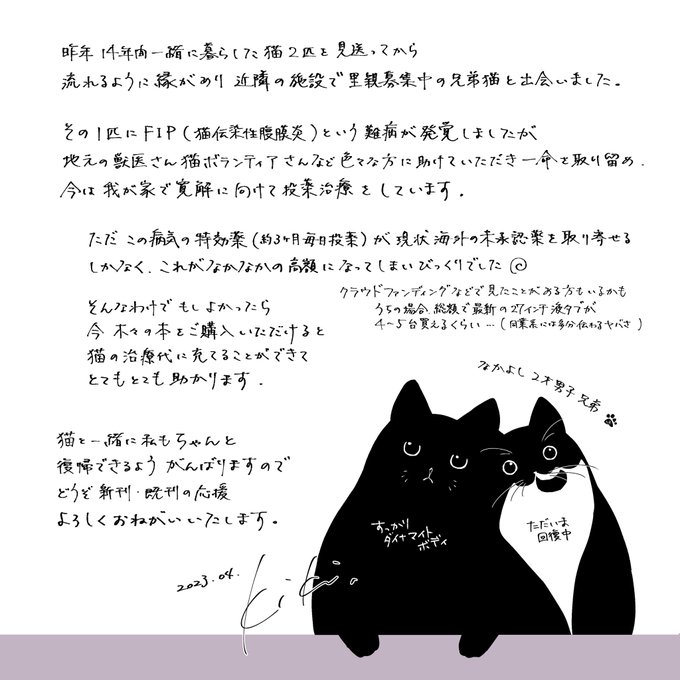 昨年 14年間一緒に暮らした猫2匹を見送ってから
流れるように縁があり 近隣の施設で里親募集中の兄弟猫と出会いました。
その1匹にFIP(猫伝染性腹膜炎)という難病が発覚しましたが
地元の獣医さん 猫ボランティアさんなど色々な方に助けていただき一命を取り留め、
今は我が家で寛解に向けて投薬治療をしています。
ただ この病気の特効薬(約3ヶ月毎日投薬)が 現状海外の未承認薬を取り寄せる
しかなく、これがなかなかの高額になってしまいびっくりでした
クラウドファンディングなどで見たことがある方もいるかも
うちの場合、総額で最新の27インチ液タブが
4〜5台買えるくらい…(同業者には多分伝わるヤバさ)
そんなわけで もしよかったら
今 木々の本をご購入いただけると
猫の治療代に充てることができて
とてもとても助かります。
なかよし 2才男子兄弟
猫と一緒に私もちゃんと
復帰できるよう がんばりますので
どうぞ 新刊・既刊の応援
よろしくおねがいいたします。
すっかり
ダイナマイト
ボディ
ただいま
回復中
2023.04.
kiki.